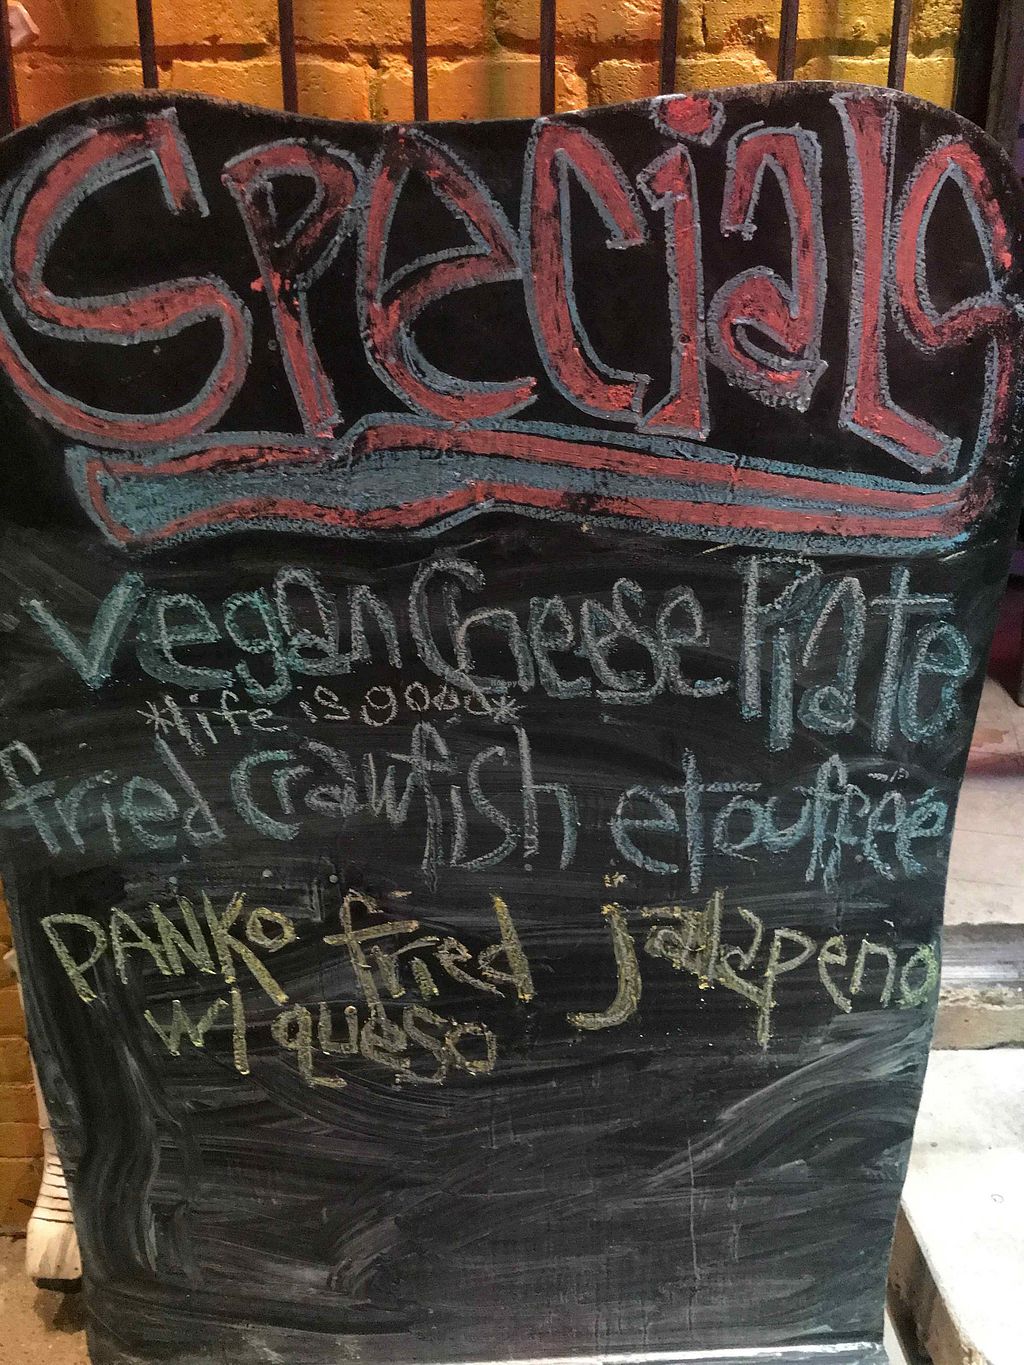 Specials
Vegan Cheese Plate
*life is good*
fried Crawfish etouffeé
PANKO fried jalapeno
w/ queso